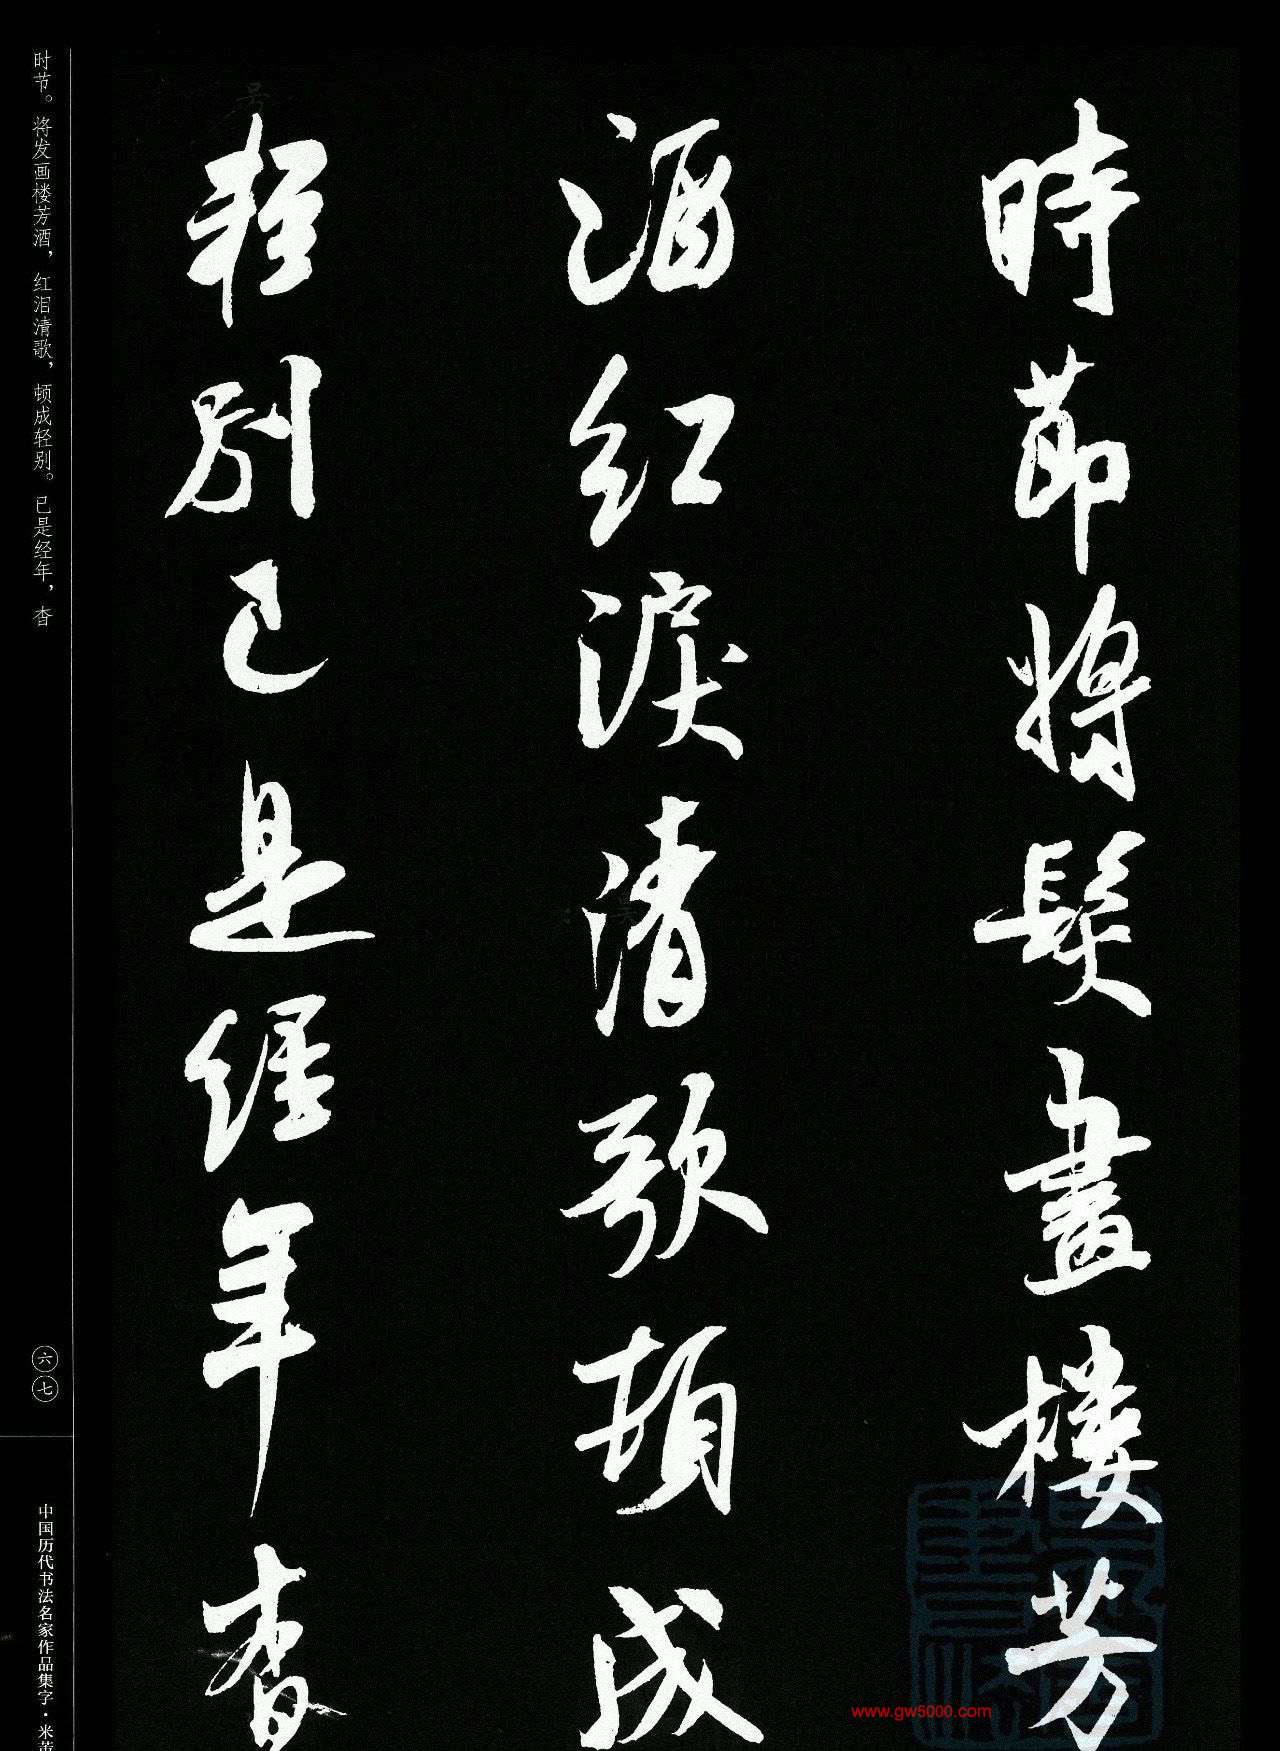 時節將髮畫樓芳
酒紅淚清歌頓成
輕別已是經年杳
时节。将发画楼芳酒，红泪清歌，顿成轻别。已是经年，杳
六七
中国历代书法名家作品集字·米芾
www.gw5000.com